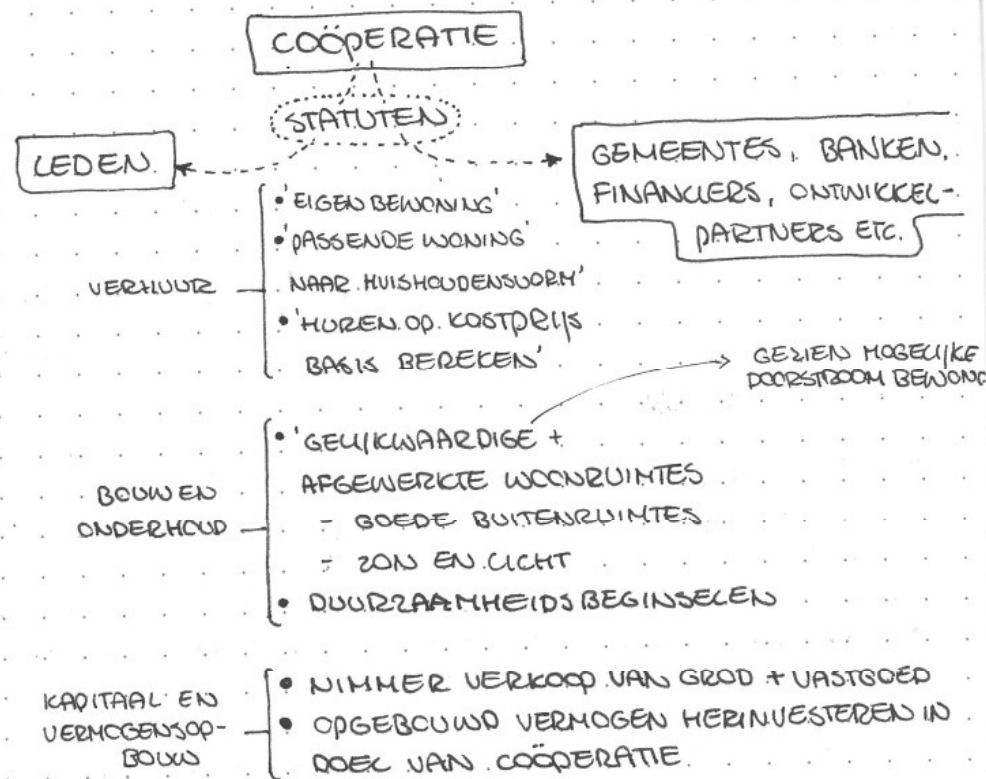 COÖPERATIE
STATUTEN
LEDEN
GEMEENTES, BANKEN,
FINANCIERS, ONTWIKKEL-
PARTNERS ETC.
VERHUUR
• 'EIGEN BEWONING'
• 'PASSENDE WONING
NAAR HUISHOUDENSVORM'
• 'HUREN OP KOSTPRIJS
BASIS BEREKEN'
GEZIEN MOGELIJKE
DOORSTROOM BEWON
BOUW EN
ONDERHOUD
• 'GELIJKWAARDIGE +
AFGEWERKTE WOONRUIMTES
- GOEDE BUITENRUIMTES
- ZON EN LICHT
• DUURZAAMHEIDSBEGINSELEN
KAPITAAL EN
VERMOGENSOP-
BOUW
• NIMMER VERKOOP VAN GROD + VASTGOED
• OPGEBOUWD VERMOGEN HERINVESTEREN IN
DOEL VAN COÖPERATIE.